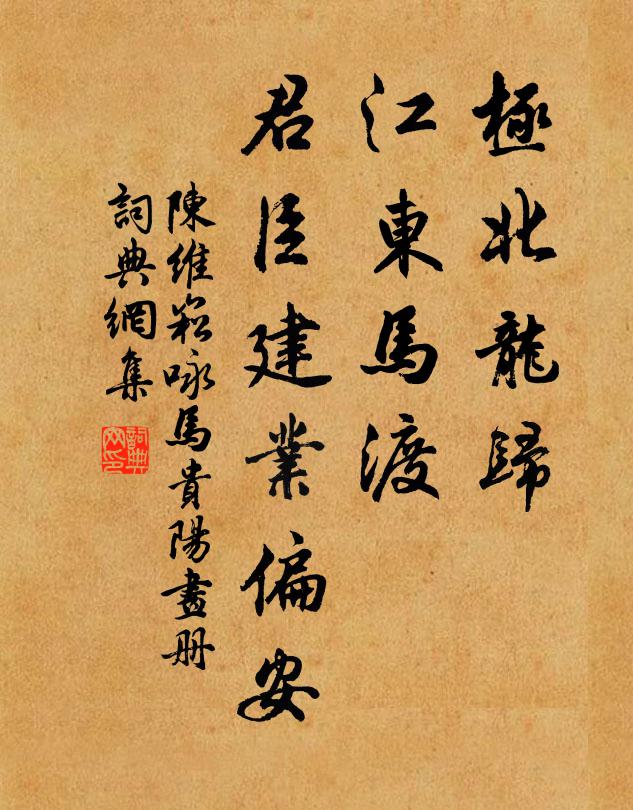 極北龍歸
江東馬渡
君臣建業偏安
陳維崧咏馬貴陽畫册
詞典網集
詞典
网印